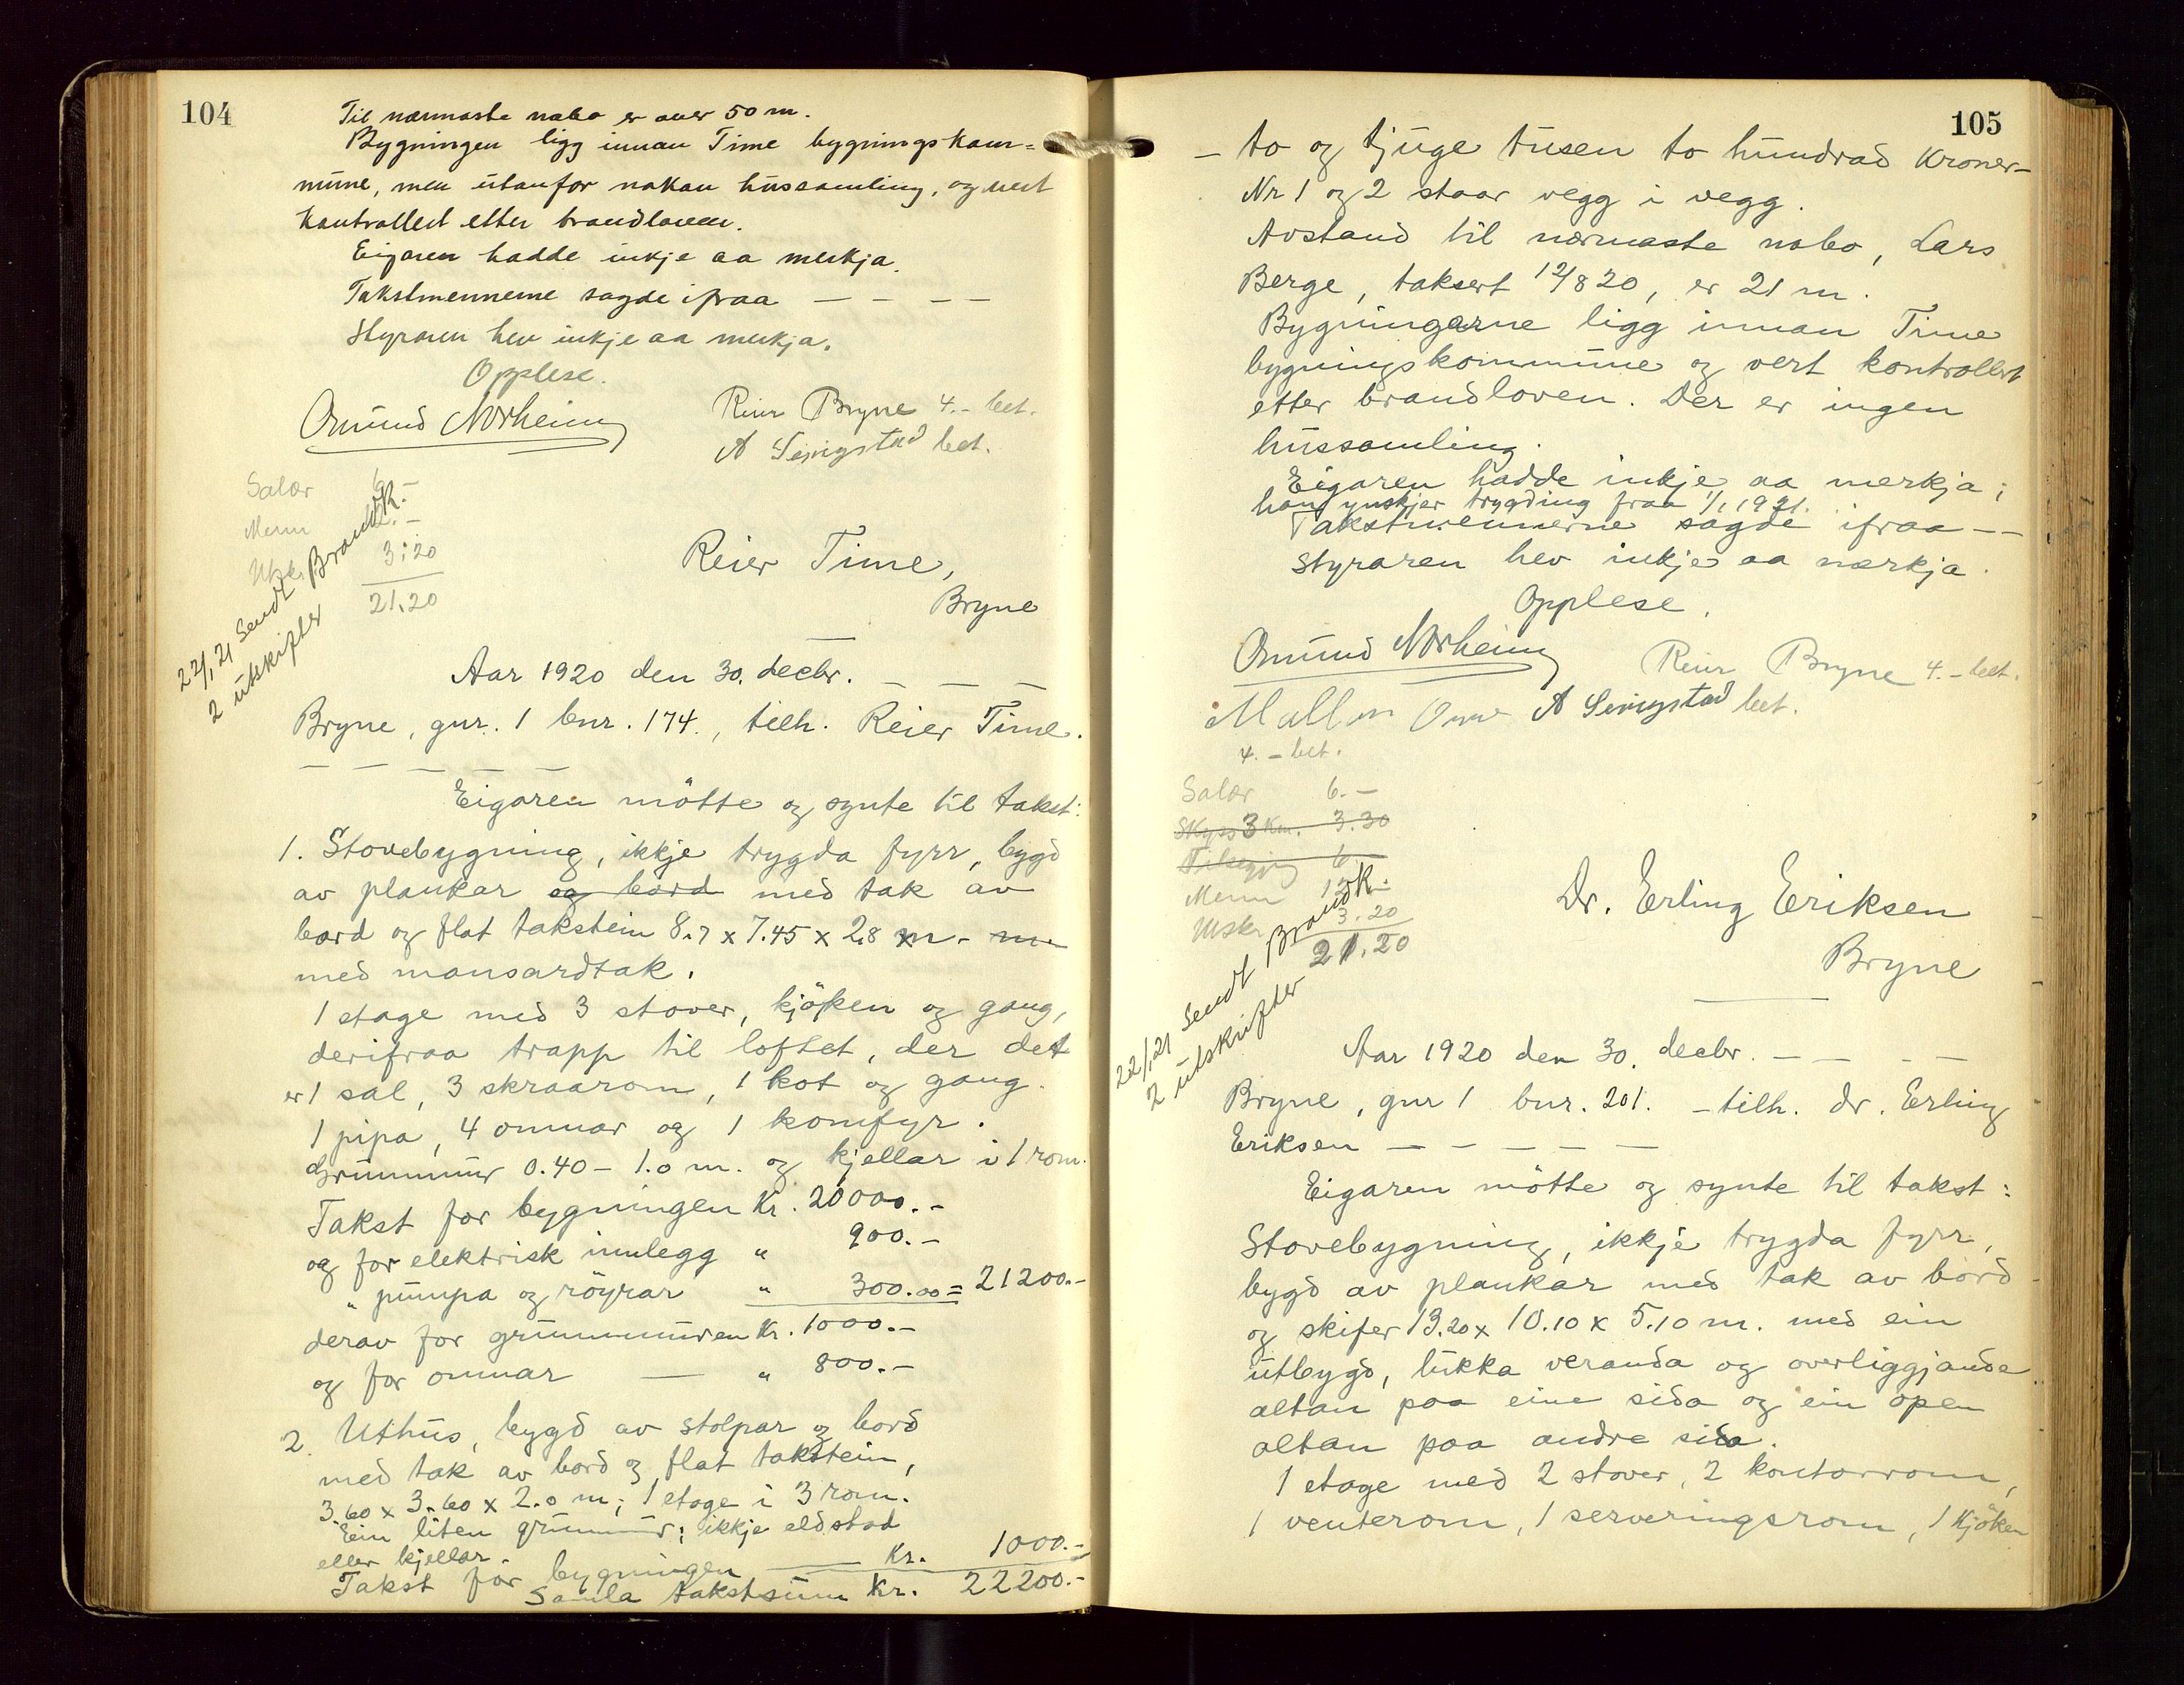 104
Til nærmaste nabo er over 50 m.
Bygningen ligg innan Time bygningskom=
mune, men utanfor nokon hussamling, og vert
kontrollert etter brandloven.
Eigaren hadde inkje aa merkja.
Takstmennerne sagde ifraa — — — —
Styraren hev inkje aa merkja.
Opplese.
Omund Norheim
Reier Bryne 4.- bet.
A Serigstad bet.
Salær 6.-
Menn 12.-
Utskr. 3.20
21.20
22/1 21 Sendt Brandk.
2 utskrifter
Reier Time,
Bryne
Aar 1920 den 30. decbr. — — —
Bryne, gnr. 1 bnr. 174., tilh. Reier Time.
— — — — —
Eigaren mötte og synte til takst:
1. Stovebygning, ikkje trygda fyrr, bygd
av plankar og bord med tak av
bord og flat takstein 8.7 x 7.45 x 2.8 m. m.
med mansardtak.
1 etage med 3 stover, kjöken og gang,
derifraa trapp til loftet, der det
er 1 sal, 3 skraarom, 1 kot og gang.
1 pipa, 4 omnar og 1 komfyr.
Grunnmur 0.40 - 1.0 m. og kjellar i 1 rom.
Takst for bygningen Kr. 20000.-
og for elektrisk innlegg " 900.-
" pumpa og röyrar " 300.00 = 21200.-
derav for grunnmuren Kr. 1000.-
og for omnar — " 800.-
2. Uthus, bygd av stolpar og bord
med tak av bord og flat takstein,
3.60 x 3.60 x 2.0 m; 1 etage i 3 rom.
Ein liten grunnmur; ikkje eldstad
eller kjellar.
Takst for bygningen — Kr. 1000.-
Samla takstsum Kr. 22200.-
105
— to og tjuge tusen to hundrad Kroner —
Nr 1 og 2 staar vegg i vegg.
Avstand til nærmaste nabo, Lars
Berge, taksert 12/8 20, er 21 m.
Bygningarne ligg innan Time
bygningskommune og vert kontrollert
etter brandloven. Der er ingen
hussamling.
Eigaren hadde inkje aa merkja;
han ynskjer trygding fraa 1/1 1921.
Takstmennerne sagde ifraa — —
Styraren hev inkje aa merkja.
Opplese.
Omund Norheim
Reier Bryne 4.- bet.
A Serigstad bet.
4.- bet.
Salær 6.-
Skyss 3 Km. 3.30
6.-
Menn 12.-
Utskr 3.20
21.20
22/1 21 Sendt Brandk.
2 utskrifter
Dr. Erling Eriksen
Bryne
Aar 1920 den 30. decbr. — — — —
Bryne, gnr 1 bnr. 201. — tilh. dr. Erling
Eriksen — — — — —
Eigaren mötte og synte til takst:
Stovebygning, ikkje trygda fyrr,
bygd av plankar med tak av bord
og skifer 13.20 x 10.10 x 5.10 m. med ein
utbygd, lukka veranda og overliggjande
altan paa eine sida og ein open
altan paa andre sida.
1 etage med 2 stover, 2 kontorrom,
1 venterom, 1 serveringsrom, 1 kjöken